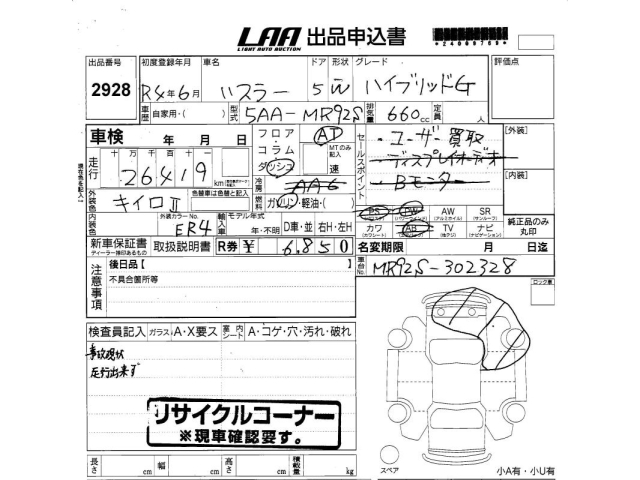 LAA 出品申込書
LIGHT AUTO AUCTION
*24009769*
出品番号 初度登録年月 車名 ドア 形状 グレード 評価点
2928 R4年6月 ハスラー 5 W ハイブリッドG
車歴 自家用・( ) 型式 5AA-MR92S 排気量 660cc 定員 人
車検 年 月 日
フロア AT
コラム MTのみ記入
ダッシュ 速
セールスポイント
・ユーザー買取
・ディスプレイオーディオ
・Bモニター
[外装]
[内装]
走行 十万千百十一
26419 km
冷房 AAC
燃料 ガソリン・軽油・( )
外装色 キイロⅡ 色替車は色替と記入
内装色 外装カラーNo. ER4
輸入車 モデル年式 年・不明 D車・並 右H・左H
PS PW AW SR
カワ AB TV ナビ
純正品のみ丸印
新車保証書 取扱説明書 R券 ¥ 6,850 名変期限 月 日迄
ディーラー捺印のあるもの
車台No. MR92S-302328
現在色を記入
注意事項 後日品[ ]
不具合箇所等
ロック車
検査員記入 ガラス A・X要ス 室内シート A・コゲ・穴・汚れ・破れ
事故現状
走行出来ず
リサイクルコーナー
※現車確認要す。
長さ cm 幅 cm 高さ cm 積載量 kg
スペア
小A有・小U有